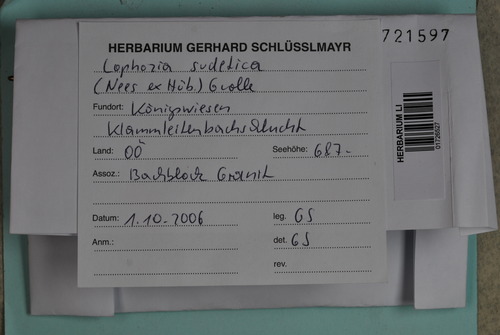 HERBARIUM GERHARD SCHLÜSSLMAYR
721597
Lophozia sudetica
(Nees ex Hüb.) Grolle
Fundort: Königswiesen
Klammleitenbachschlucht
Land: OÖ Seehöhe: 687.-
Assoz.: Bachblock Granit
Datum: 1.10.2006 leg. GS
Anm.: det. GS
rev.
HERBARIUM LI
01726527